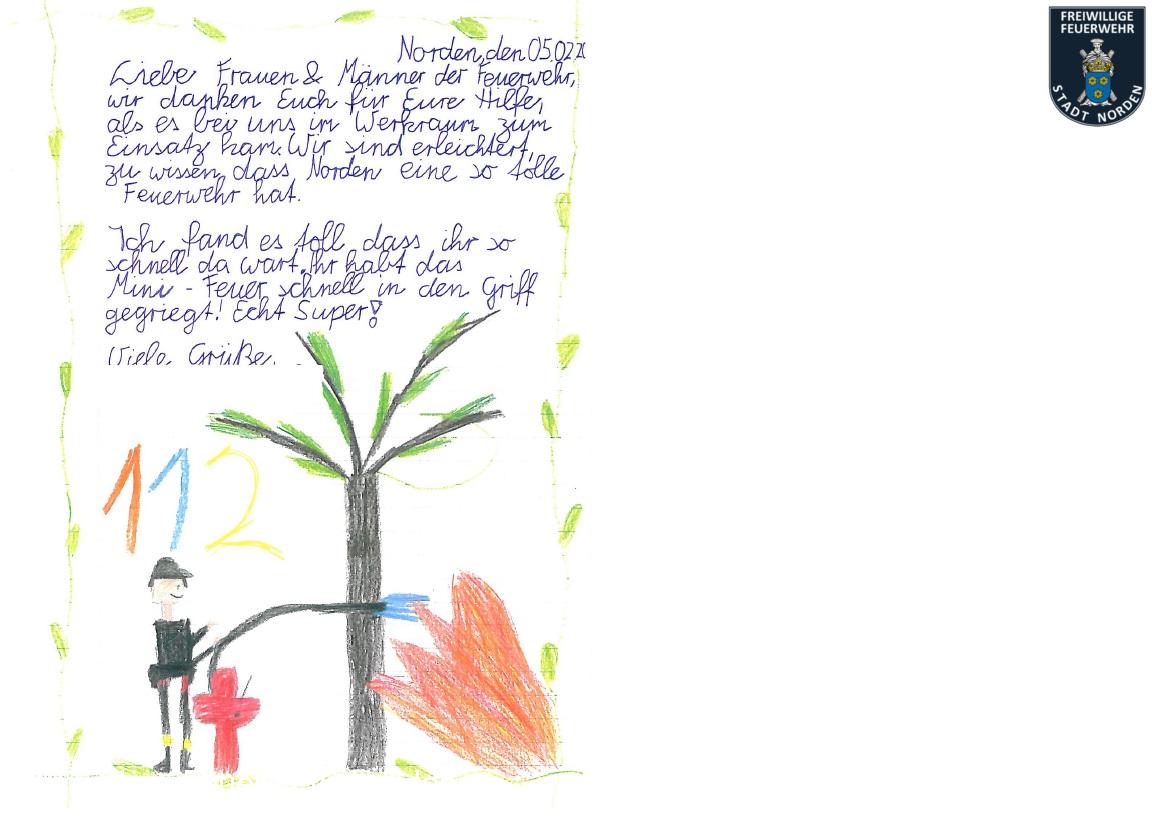 Norden, den 05.02.20
Liebe Frauen & Männer der Feuerwehr,
wir danken Euch für Eure Hilfe,
als es bei uns im Werkraum zum
Einsatz kam. Wir sind erleichtert,
zu wissen, dass Norden eine so tolle
Feuerwehr hat.
Ich fand es toll, dass ihr so
schnell da wart. Ihr habt das
Mini - Feuer schnell in den Griff
gegriegt! Echt Super!
Viele Grüße.
112
FREIWILLIGE
FEUERWEHR
STADT NORDEN